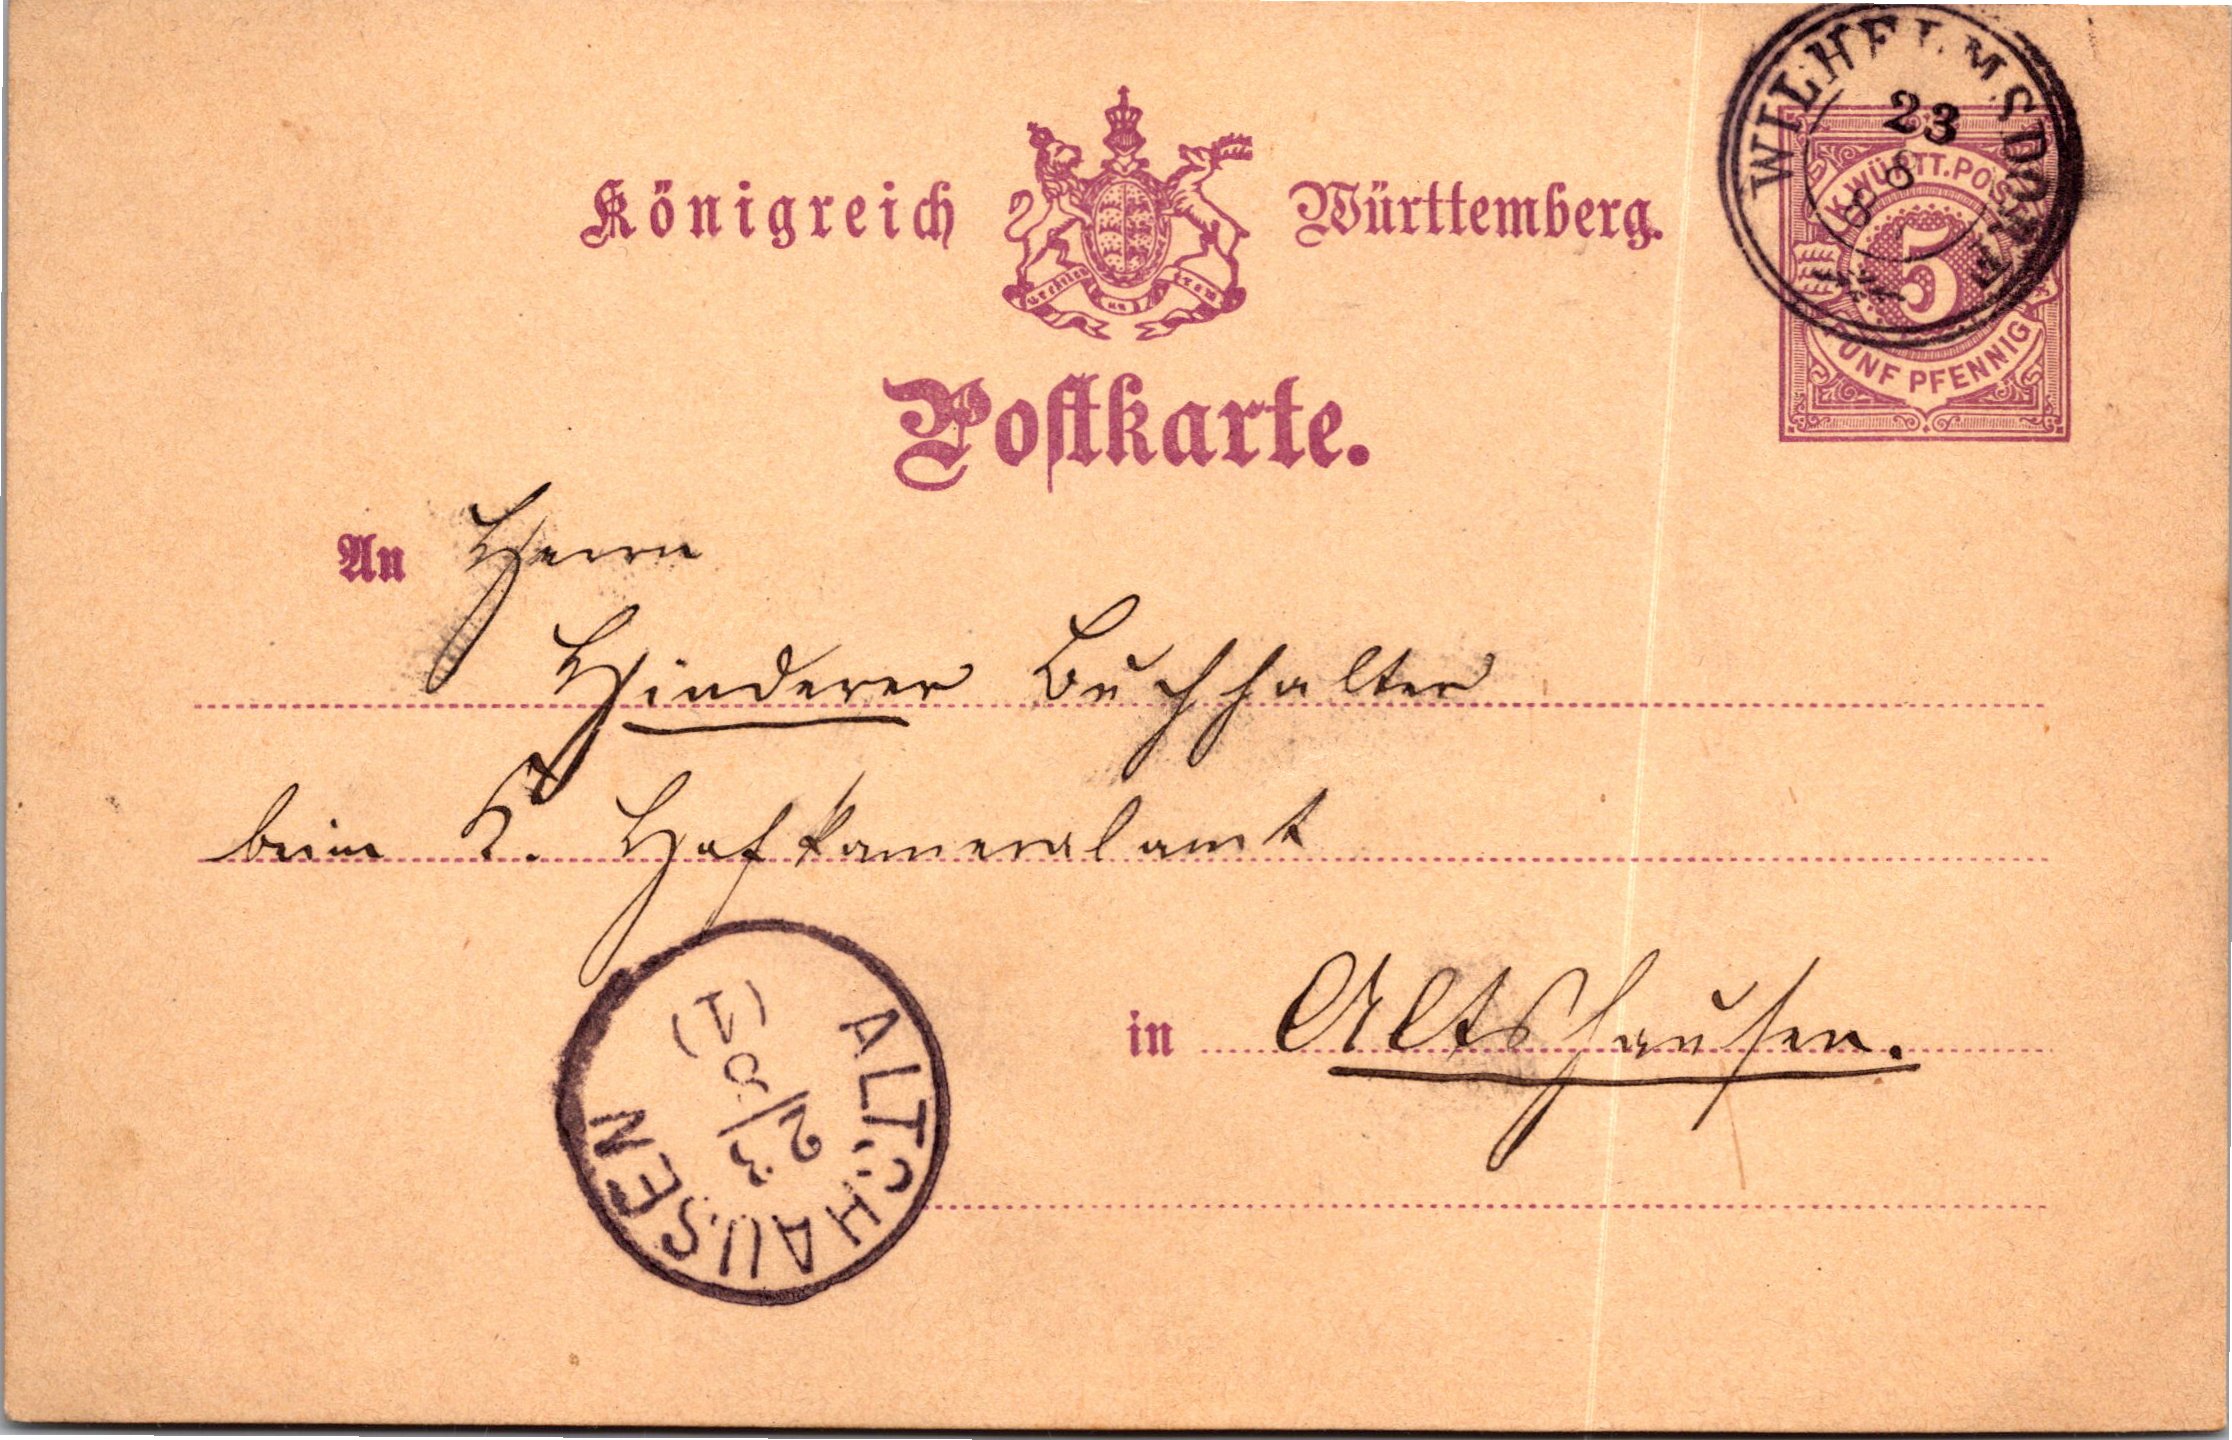 Königreich Württemberg.
WILHELMSDORF
23
8 8
K.WÜRTT.POST
5
FÜNF PFENNIG
Postkarte.
An Herrn
Hinderer Buchhalter
beim K. Hofkameralamt
in Altshausen.
ALTSHAUSEN
23/8
(1)